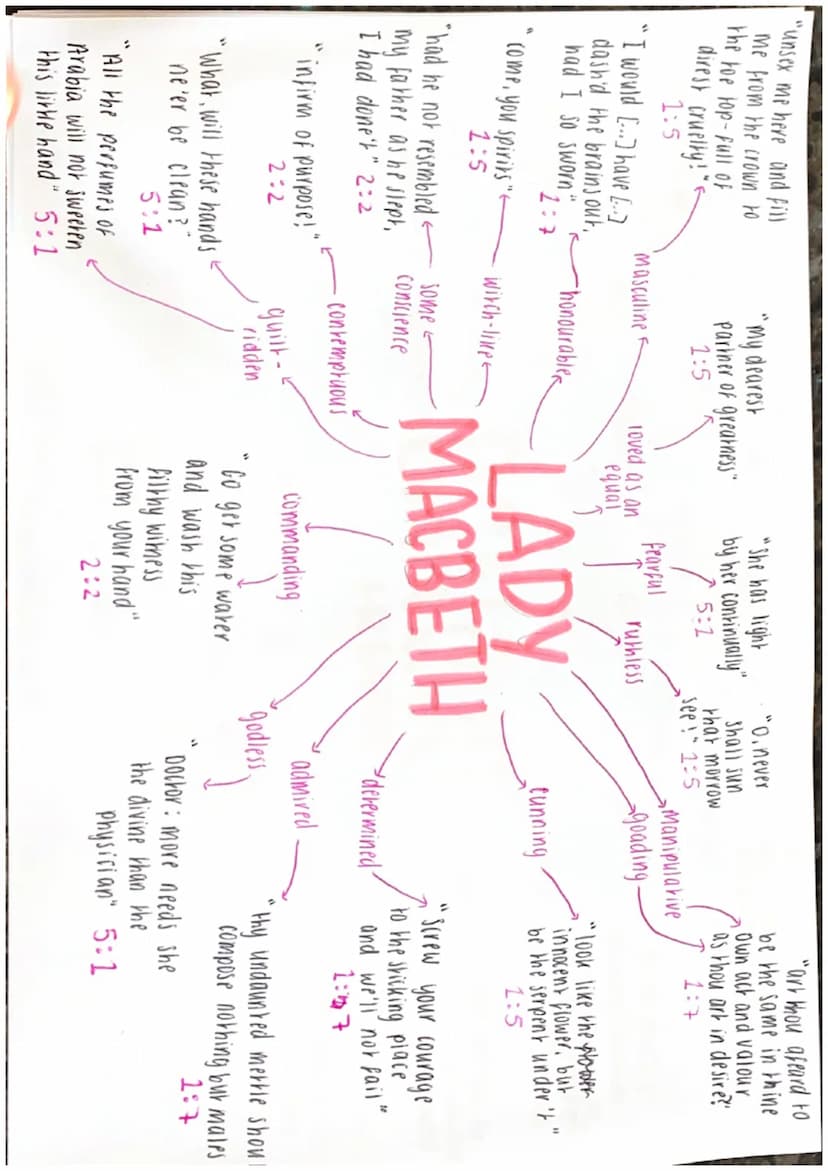 LADY
MACBETH
masculine
"unsex me here and fill
me from the crown to
the toe top-full of
direst cruelty!"
1:5
honourable
"I would [...] have [...]
dash'd the brains out,
had I so sworn"
1:7
witch-like
"come, you spirits"
1:5
some
conscience
"had he not resembled
my father as he slept,
I had done't" 2:2
contemptuous
"infirm of purpose!"
2:2
guilt-
ridden
"What, will these hands
ne'er be clean?"
5:1
"All the perfumes of
Arabia will not sweeten
this little hand" 5:1
loved as an
equal
"my dearest
partner of greatness"
1:5
fearful
"she has light
by her continually"
5:1
ruthless
"O, never
shall sun
that morrow
see!" 1:5
manipulative
goading
"art thou afeard to
be the same in thine
own act and valour
as thou art in desire?"
1:7
cunning
"look like the flower
innocent flower, but
be the serpent under't"
1:5
determined
"Screw your courage
to the sticking place
and we'll not fail"
1:7
admired
"thy undaunted mettle shoul
compose nothing but males
1:7
godless
"Doctor: more needs she
the divine than the
physician" 5:1
commanding
"Go get some water
and wash this
filthy witness
from your hand"
2:2